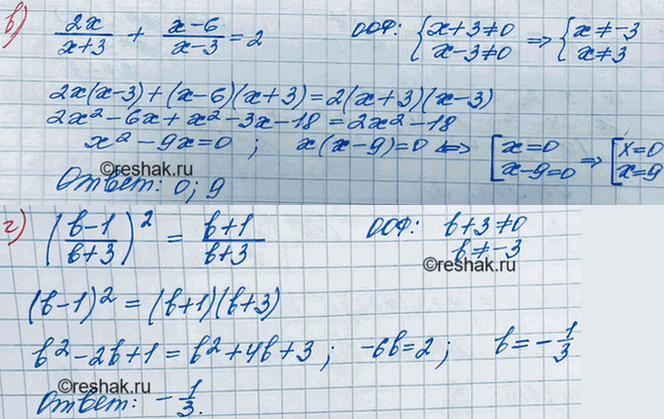 в) 2x/(x+3) + (x-6)/(x-3) = 2 ООФ: { x+3≠0 x-3≠0 => { x≠-3 x≠3
2x(x-3)+(x-6)(x+3)=2(x+3)(x-3)
2x²-6x+x²-3x-18=2x²-18
x²-9x=0; x(x-9)=0 <=> [ x=0 x-9=0 => [ x=0 x=9
©reshak.ru
©reshak.ru
Ответ: 0; 9
г) ((b-1)/(b+3))² = (b+1)/(b+3) ООФ: b+3≠0
b≠-3
©reshak.ru
(b-1)²=(b+1)(b+3)
b²-2b+1=b²+4b+3; -6b=2; b=-1/3
©reshak.ru
Ответ: -1/3.